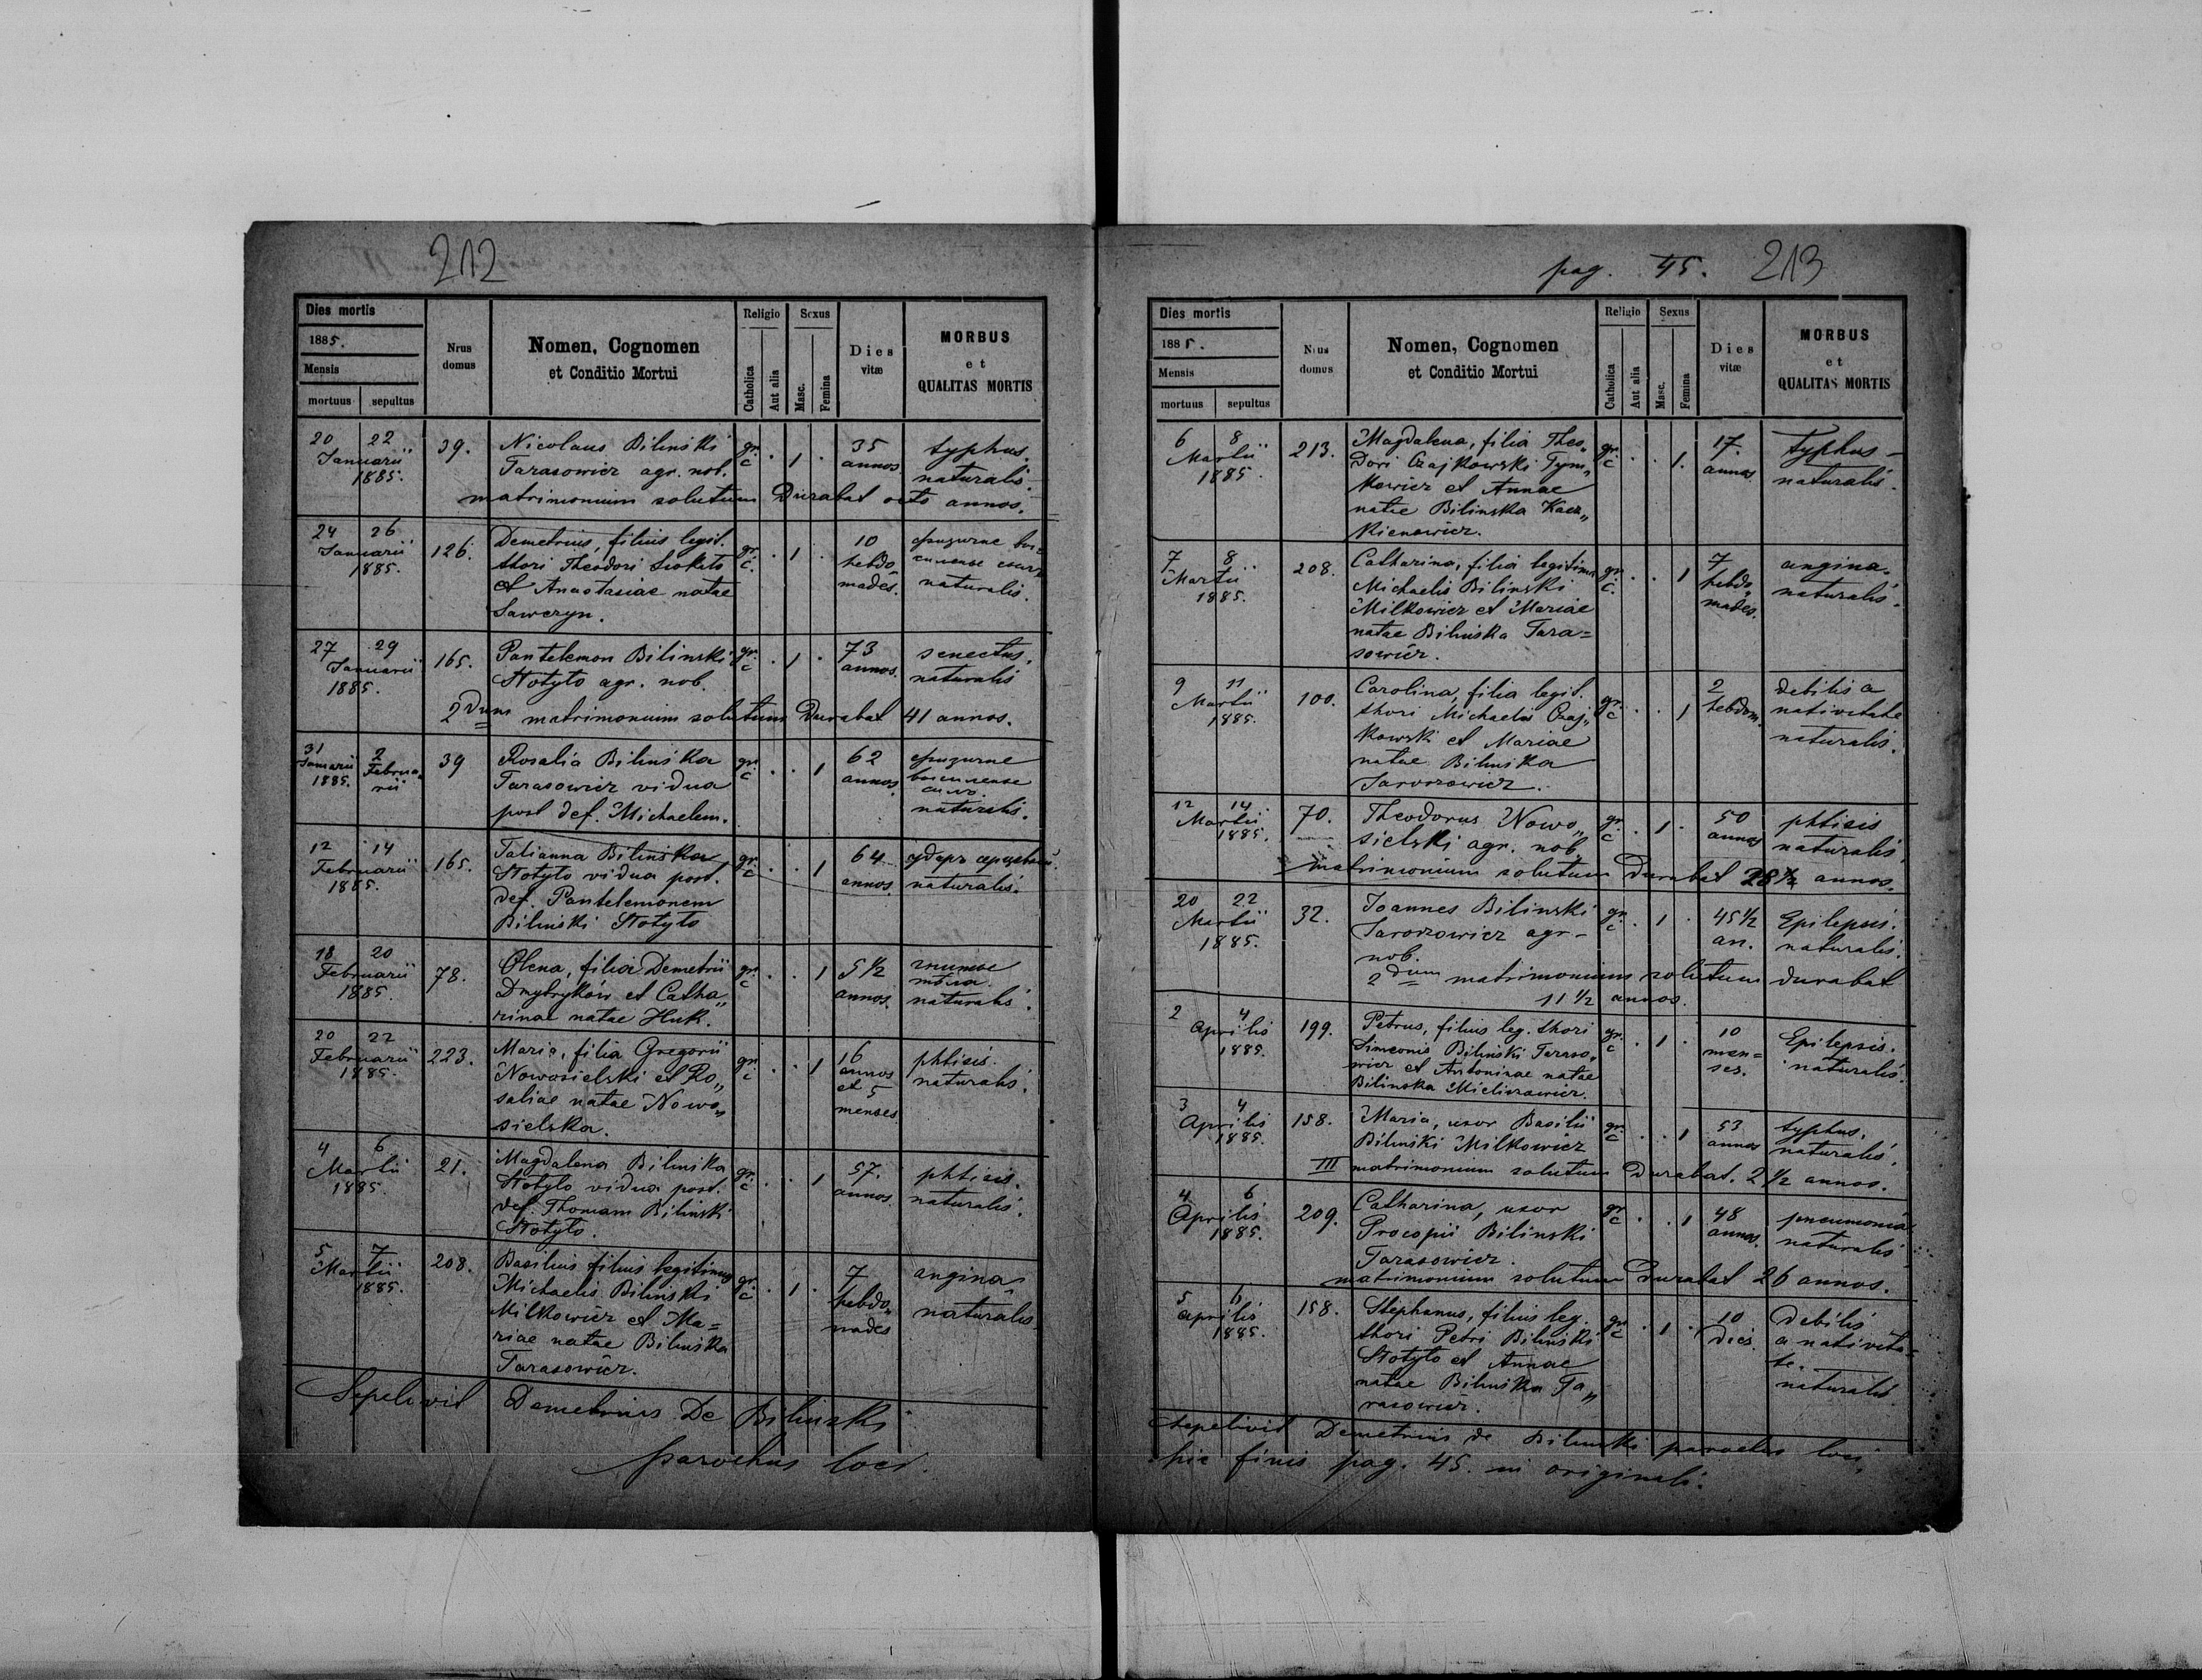 212
Dies mortis
1885.
Mensis
mortuus sepultus
Nrus domus
Nomen, Cognomen
et Conditio Mortui
Religio
Catholica
Aut alia
Sexus
Masc.
Femina
Dies vitæ
MORBUS
et
QUALITAS MORTIS
20 22 39. Nicolaus Bilinski gr. c. . 1 . 35 typhus.
Januarii Tarasowicz agr. nob. annos naturalis.
1885. matrimonium solutum durabat octo annos.
24 26 126. Demetrius, filius legit. gr. c. . 1 . 10
Januarii thori Theodori et Anastasiae natae hebdo
1885. Saweryn. mades. naturalis.
27 29 165. Pantelemon Bilinski gr. c . 1 . 73 senectus.
Januarii Stotyto agr. nob. annos. naturalis
1885.
2dum matrimonium solutum durabat 41 annos.
31 2 39 Rosalia Bilinska gr. c . . 1 62
Januarii Februa Tarasowicz vidua annos.
1885. rii post def. Michaelem. naturalis.
12 14 165. Tatianna Bilinska gr. c . . 1 64
Februarii Stotyto vidua post. annos. naturalis.
1885. def. Pantelemonem
Bilinski Stotyto
18 20 78. Olena, filia Demetrii gr. c . . 1 5 1/2
Februarii Dmytryków et Catha„ annos.
1885. rinae natae Huk. naturalis.
20 22 223. Maria, filia Gregorii gr. c . . 1 16 phtisis.
Februarii Nowosielski et Ro„ annos naturalis.
1885. saliae natae Nowo„ et 5
sielska. menses
4 6 21. Magdalena Bilinska gr. c . . 1 57. phtisis.
Martii Stotyto vidua post. annos. naturalis.
1885. def. Thomam Bilinski
Stotyto.
5 7 208. Basilius filius legitimus gr. c . 1 . 7 angina
Martii Michaelis Bilinski hebdo„ naturalis.
1885. Milkowicz et Ma= mades
riae natae Bilinska
Tarasowicz.
Sepelivit Demetrius De Bilinski
parochus loci.
pag. 45. 213
Dies mortis
1885.
Mensis
mortuus sepultus
Nrus domus
Nomen, Cognomen
et Conditio Mortui
Religio
Catholica
Aut alia
Sexus
Masc.
Femina
Dies vitæ
MORBUS
et
QUALITAS MORTIS
6 8 213. Magdalena, filia Theo„ gr. c . . 1. 17. typhus-
Martii dori Czajkowski Tym„ annos naturalis.
1885. kowicz et Annae
natae Bilinska
7 8 208. Catharina, filia legitima gr. c. . . 1 7 angina.
Martii Michaelis Bilinski hebdo„ naturalis.
1885. Milkowicz et Mariae mades.
natae Bilinska Tara=
sowicz.
9 11 100. Carolina, filia legit. gr. c . . 1 2 debilis a
Martii thori Michaelis Czaj„ hebdom. nativitate
1885. kowski et Mariae naturalis.
natae Bilinska
Jaworowicz.
12 14 70. Theodorus Nowo„ gr. c . 1 . 50 phtisis
Martii sielski agr. nob. annos naturalis.
1885. matrimonium solutum durabat 28 1/2 annos.
20 22 32. Joannes Bilinski gr. c . 1 . 45 1/2 Epilepsis.
Martii agr- an. naturalis.
1885. nob.
2dum matrimonium solutum durabat
11 1/2 annos.
2 4 199. Petrus, filius leg. thori gr. c . 1 . 10 Epilepsis.
Aprilis Simeonis Bilinski Taraso„ men= naturalis.
1885. wicz et Antoninae natae ses.
Bilinska
3 4 158. Maria, uxor Basilii gr. c . . 1 53 typhus.
Aprilis Bilinski Milkowicz annos naturalis.
1885. III matrimonium solutum durabat. 2 1/2 annos.
4 6 209. Catharina, uxor gr. c . . 1 48 pneumonia
Aprilis Procopii Bilinski annos. naturalis
1885. Tarasowicz.
matrimonium solutum durabat 26 annos.
5 6 158. Stephanus, filius leg. gr. c . 1 . 10 Debilis
Aprilis thori Petri Bilinski dies. a nativita=
1885. Stotyto et Annae te.
natae Bilinska Ta„ naturalis
rasowicz.
Sepelivit Demetrius de Bilinski parochus loci,
hic finis pag. 45. in originali.